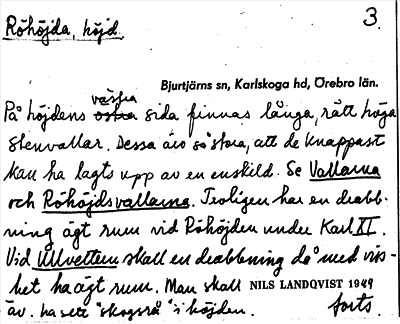 Röhöjda, höjd.
3.
Bjurtjärns sn, Karlskoga hd, Örebro län.
västra
På höjdens östra sida finnas långa, rätt höga
stenvallar. Dessa äro så stora, att de knappast
kan ha lagts upp av en enskild. Se Vallarna
och Röhöjdsvallarna. Troligen har en drabb-
ning ägt rum vid Röhöjden under Karl XI.
Vid Ullvettern skall en drabbning då med viss-
het ha ägt rum. Man skall NILS LANDQVIST 1949
äv. ha sett "skogsrå" i höjden. forts.